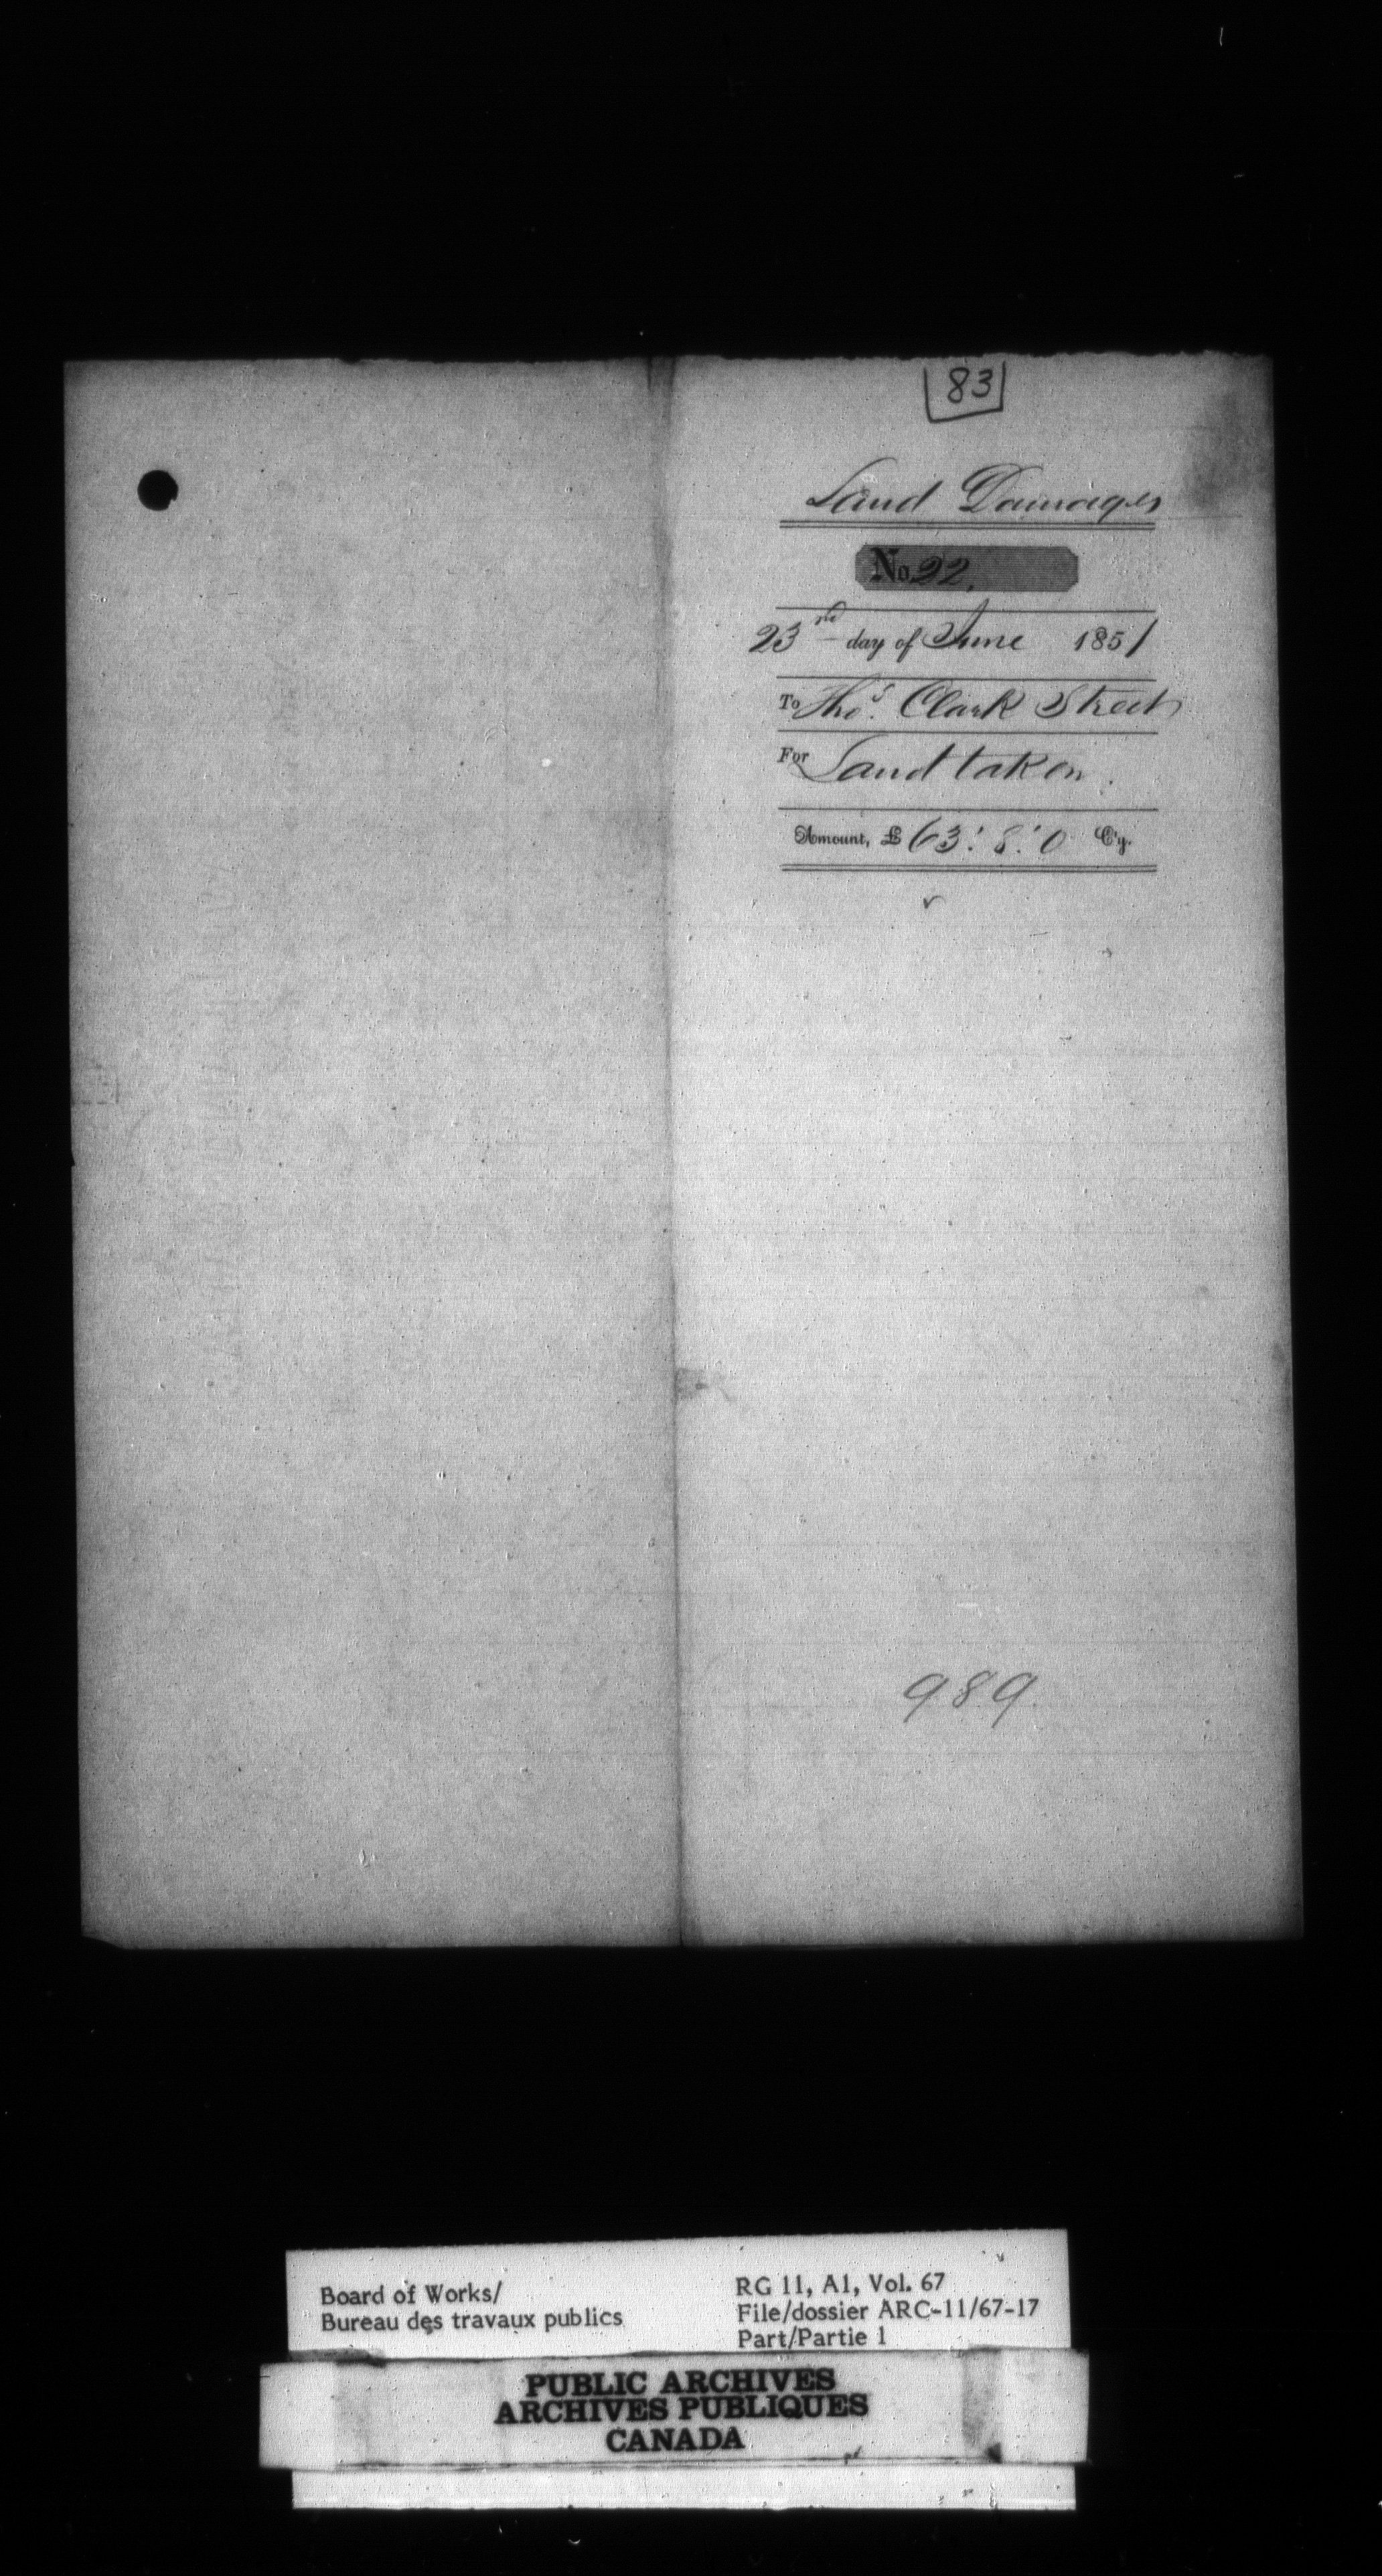 83
Land Damages
No. 22.
23rd day of June 1851
To Thos. Clark Street
For Land taken.
Amount, £ 63. 8. 0 Cy.
989
Board of Works/
Bureau des travaux publics
RG 11, A1, Vol. 67
File/dossier ARC-11/67-17
Part/Partie 1
PUBLIC ARCHIVES
ARCHIVES PUBLIQUES
CANADA